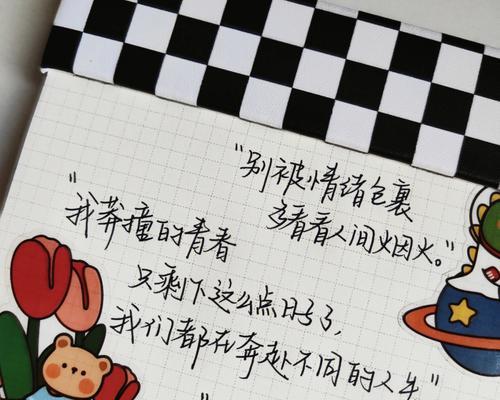 “别被情绪包裹
多看看人间烟火。”
“我莽撞的青春
只剩下这么点日子了，
我们都在奔赴不同的人生”
“